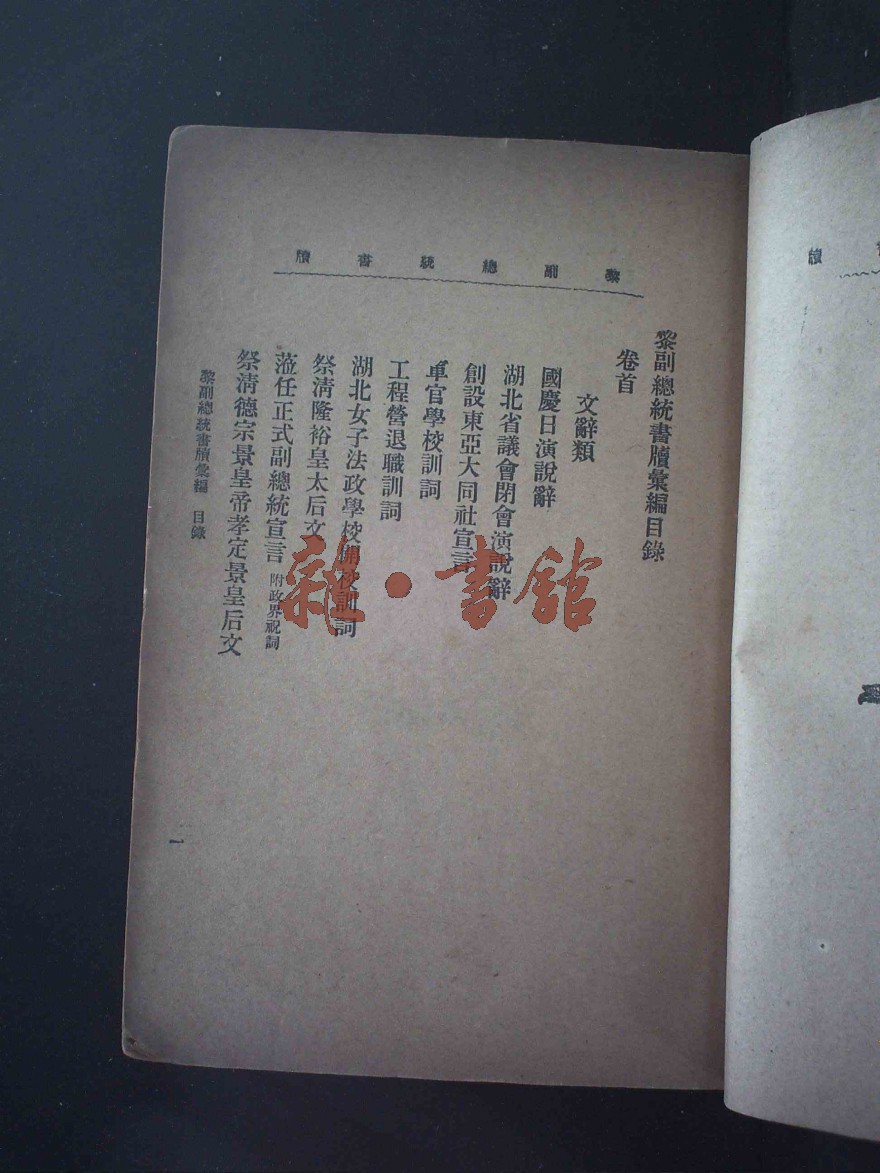 黎副總統書牘
黎副總統書牘彙編目錄
卷首
文辭類
國慶日演說辭
湖北省議會閉會演說辭
創設東亞大同社宣言
軍官學校訓詞
工程營退職訓詞
湖北女子法政學校開校訓詞
祭清隆裕皇太后文
蒞任正式副總統宣言 附政界祝詞
祭清德宗景皇帝孝定景皇后文
黎副總統書牘彙編 目錄
一
雜·書館
牘